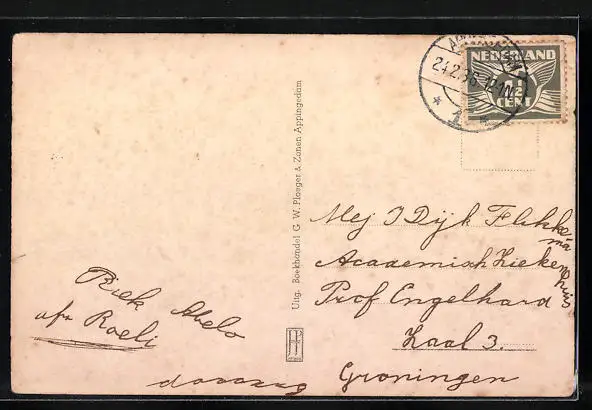 NEDERLAND
1½
CENT
1
Uitg. Boekhandel G. W. Ploeger & Zonen Appingedam
Mej I Dijk Flikkema
Academisch Ziekenhuis
Prof Engelhard
Zaal 3.
Groningen
Abels
afz Roeli